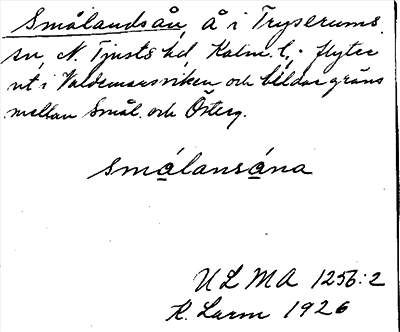 Smålandsån, å i Tryserums
sn, N. Tjusts hd, Kalm. l., flyter
ut i Valdemarsviken och bildar gräns
mellan Smål. och Österg.
smålansåna
ULMA 1256:2
R. Larm 1926